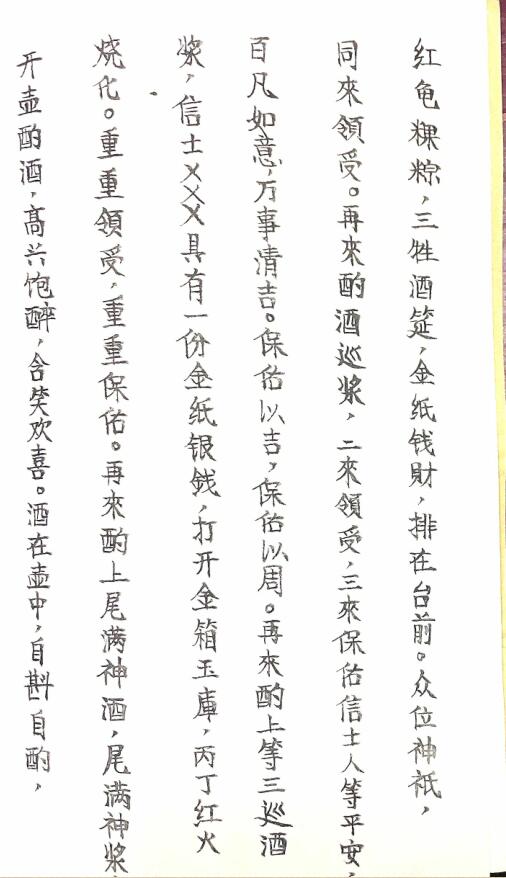 红龟粿粽，三牲酒筵，金纸钱财，排在台前。众位神祇，
同來領受。再來酌酒巡浆，二來領受，三來保佑信士人等平安，
百凡如意，万事清吉。保佑以吉，保佑以周。再來酌上等三巡酒
浆，信士XXX具有一份金纸银銭，打开金箱玉庫，丙丁红火
烧化。重重領受，重重保佑。再來酌上尾满神酒，尾满神浆，
开壶酌酒，高兴饱醉，含笑欢喜。酒在壶中，自斟自酌，